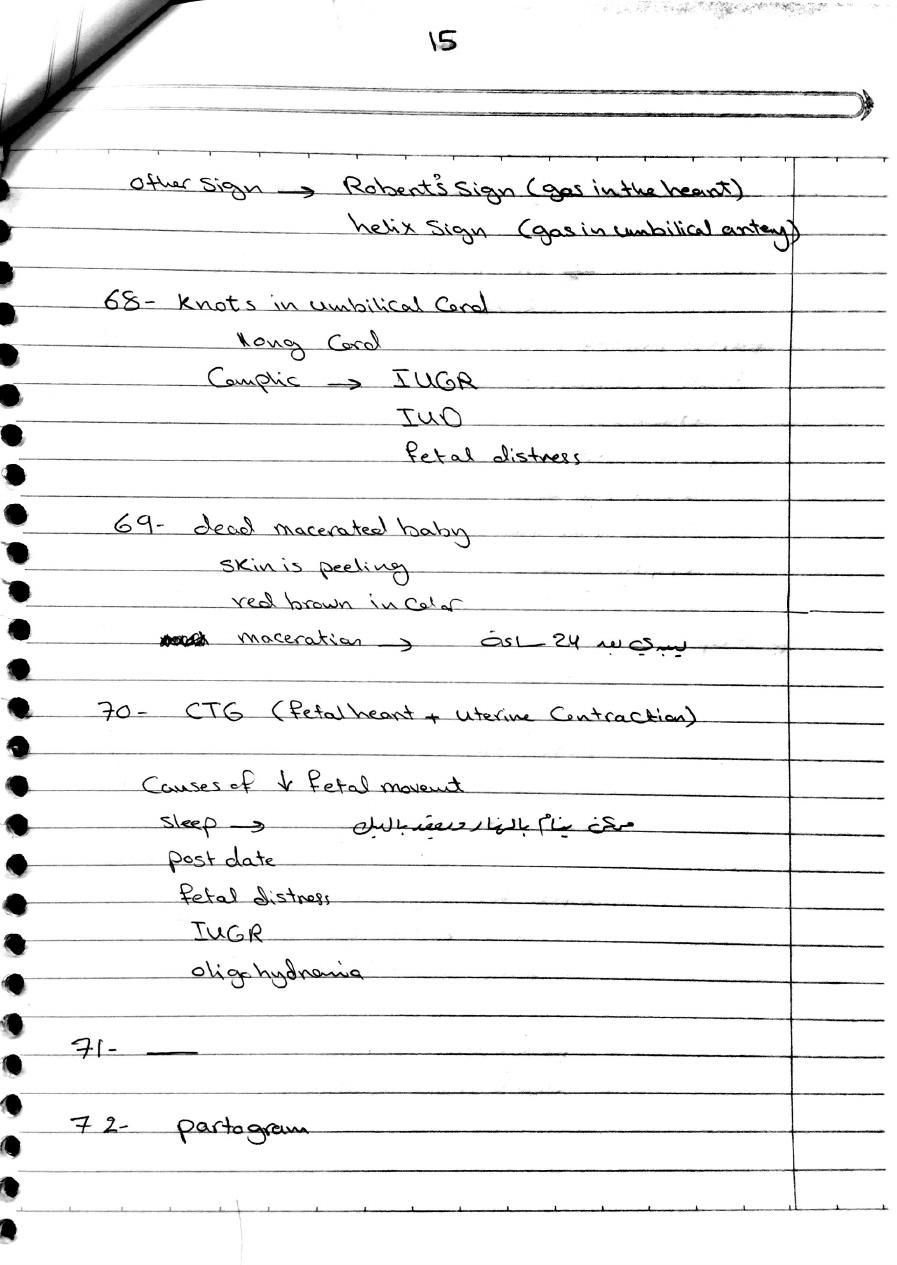 15
other Sign → Robert's Sign (gas in the heart)
helix Sign (gas in umbilical artery)
68- Knots in umbilical Cord
long Cord
Complic → IUGR
IUD
fetal distress
69- dead macerated baby
skin is peeling
red brown in Color
maceration → يبدي بعد 24 ساعة
70- CTG (fetal heart + uterine Contraction)
Causes of ↓ fetal movemt
sleep → ممكن ينام بالنهار بالليل
post date
fetal distress
IUGR
oligohydramia
71- —
72- partogram